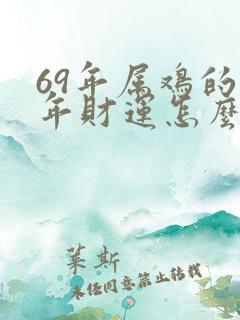 69年属鸡的
年财运怎麽
莱斯
未经同意禁止转载